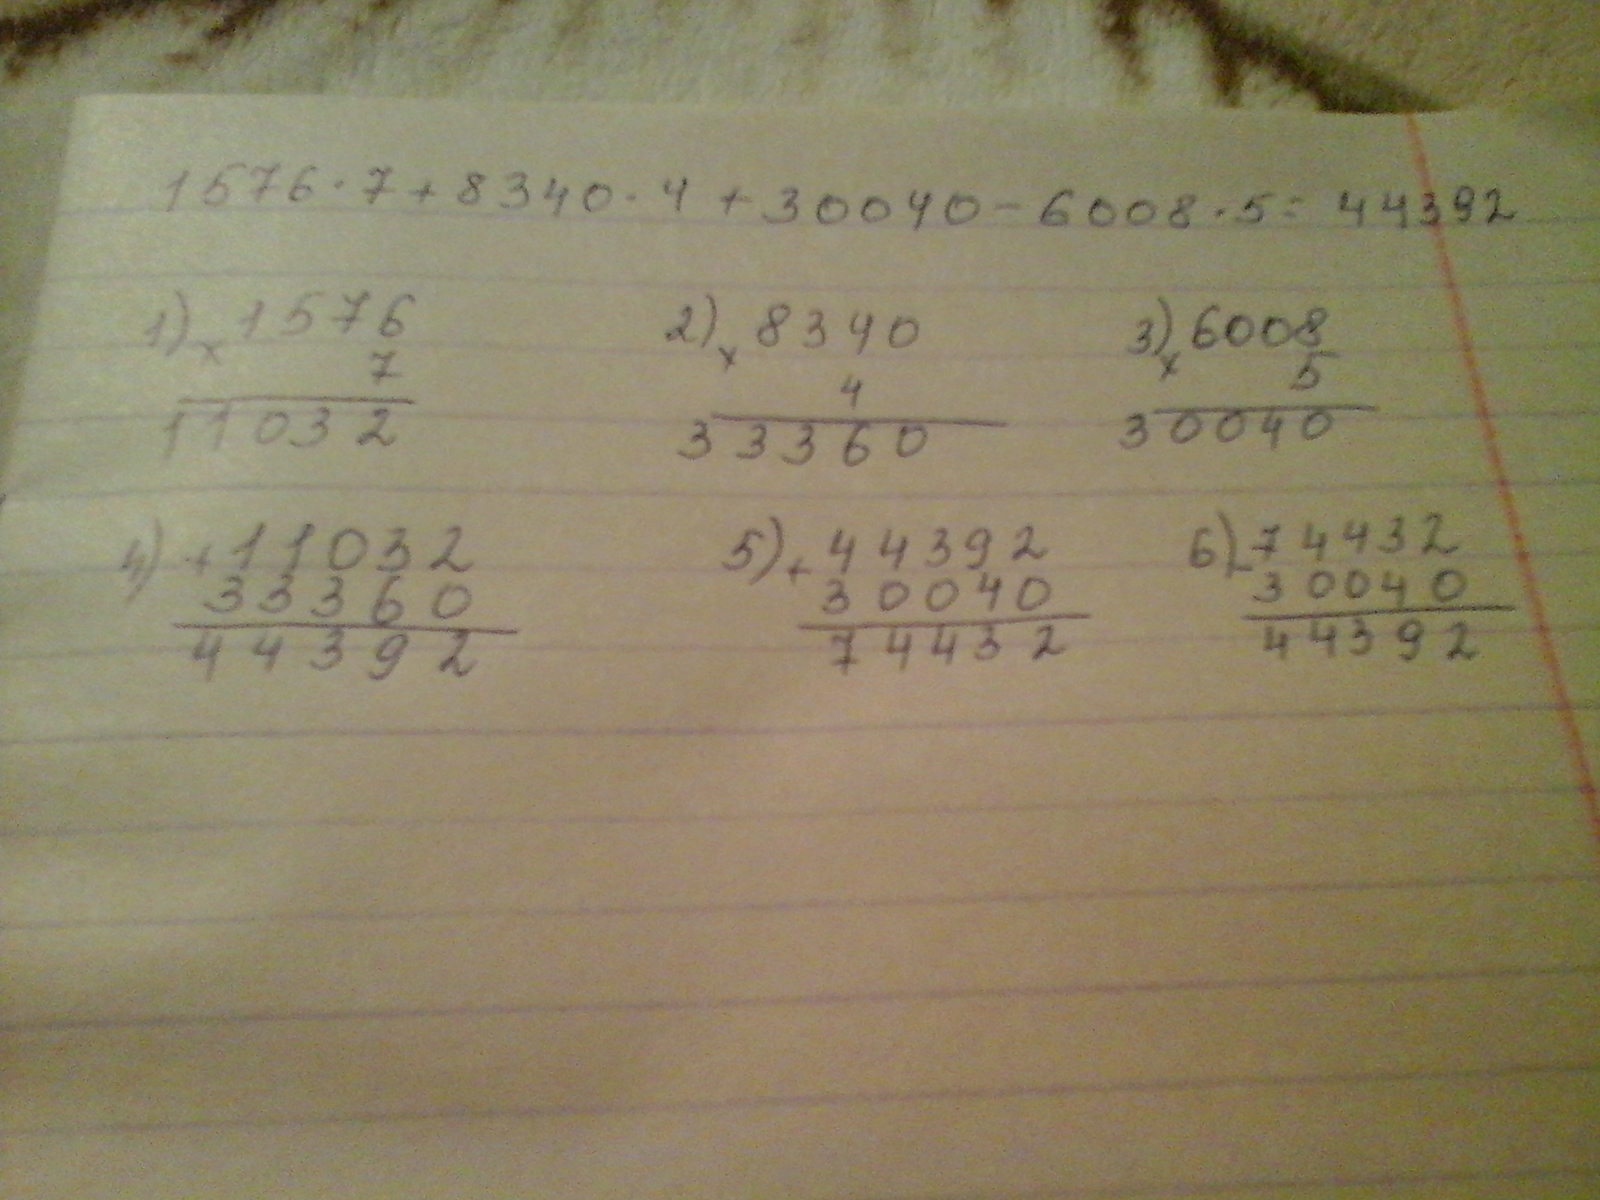 1576·7+8340·4+30040-6008·5= 44392
1) × 1576 2) × 8340 3) × 6008
7 4 5
11032 33360 30040
4) + 11032 5) + 44392 6) - 74432
33360 30040 30040
44392 74432 44392